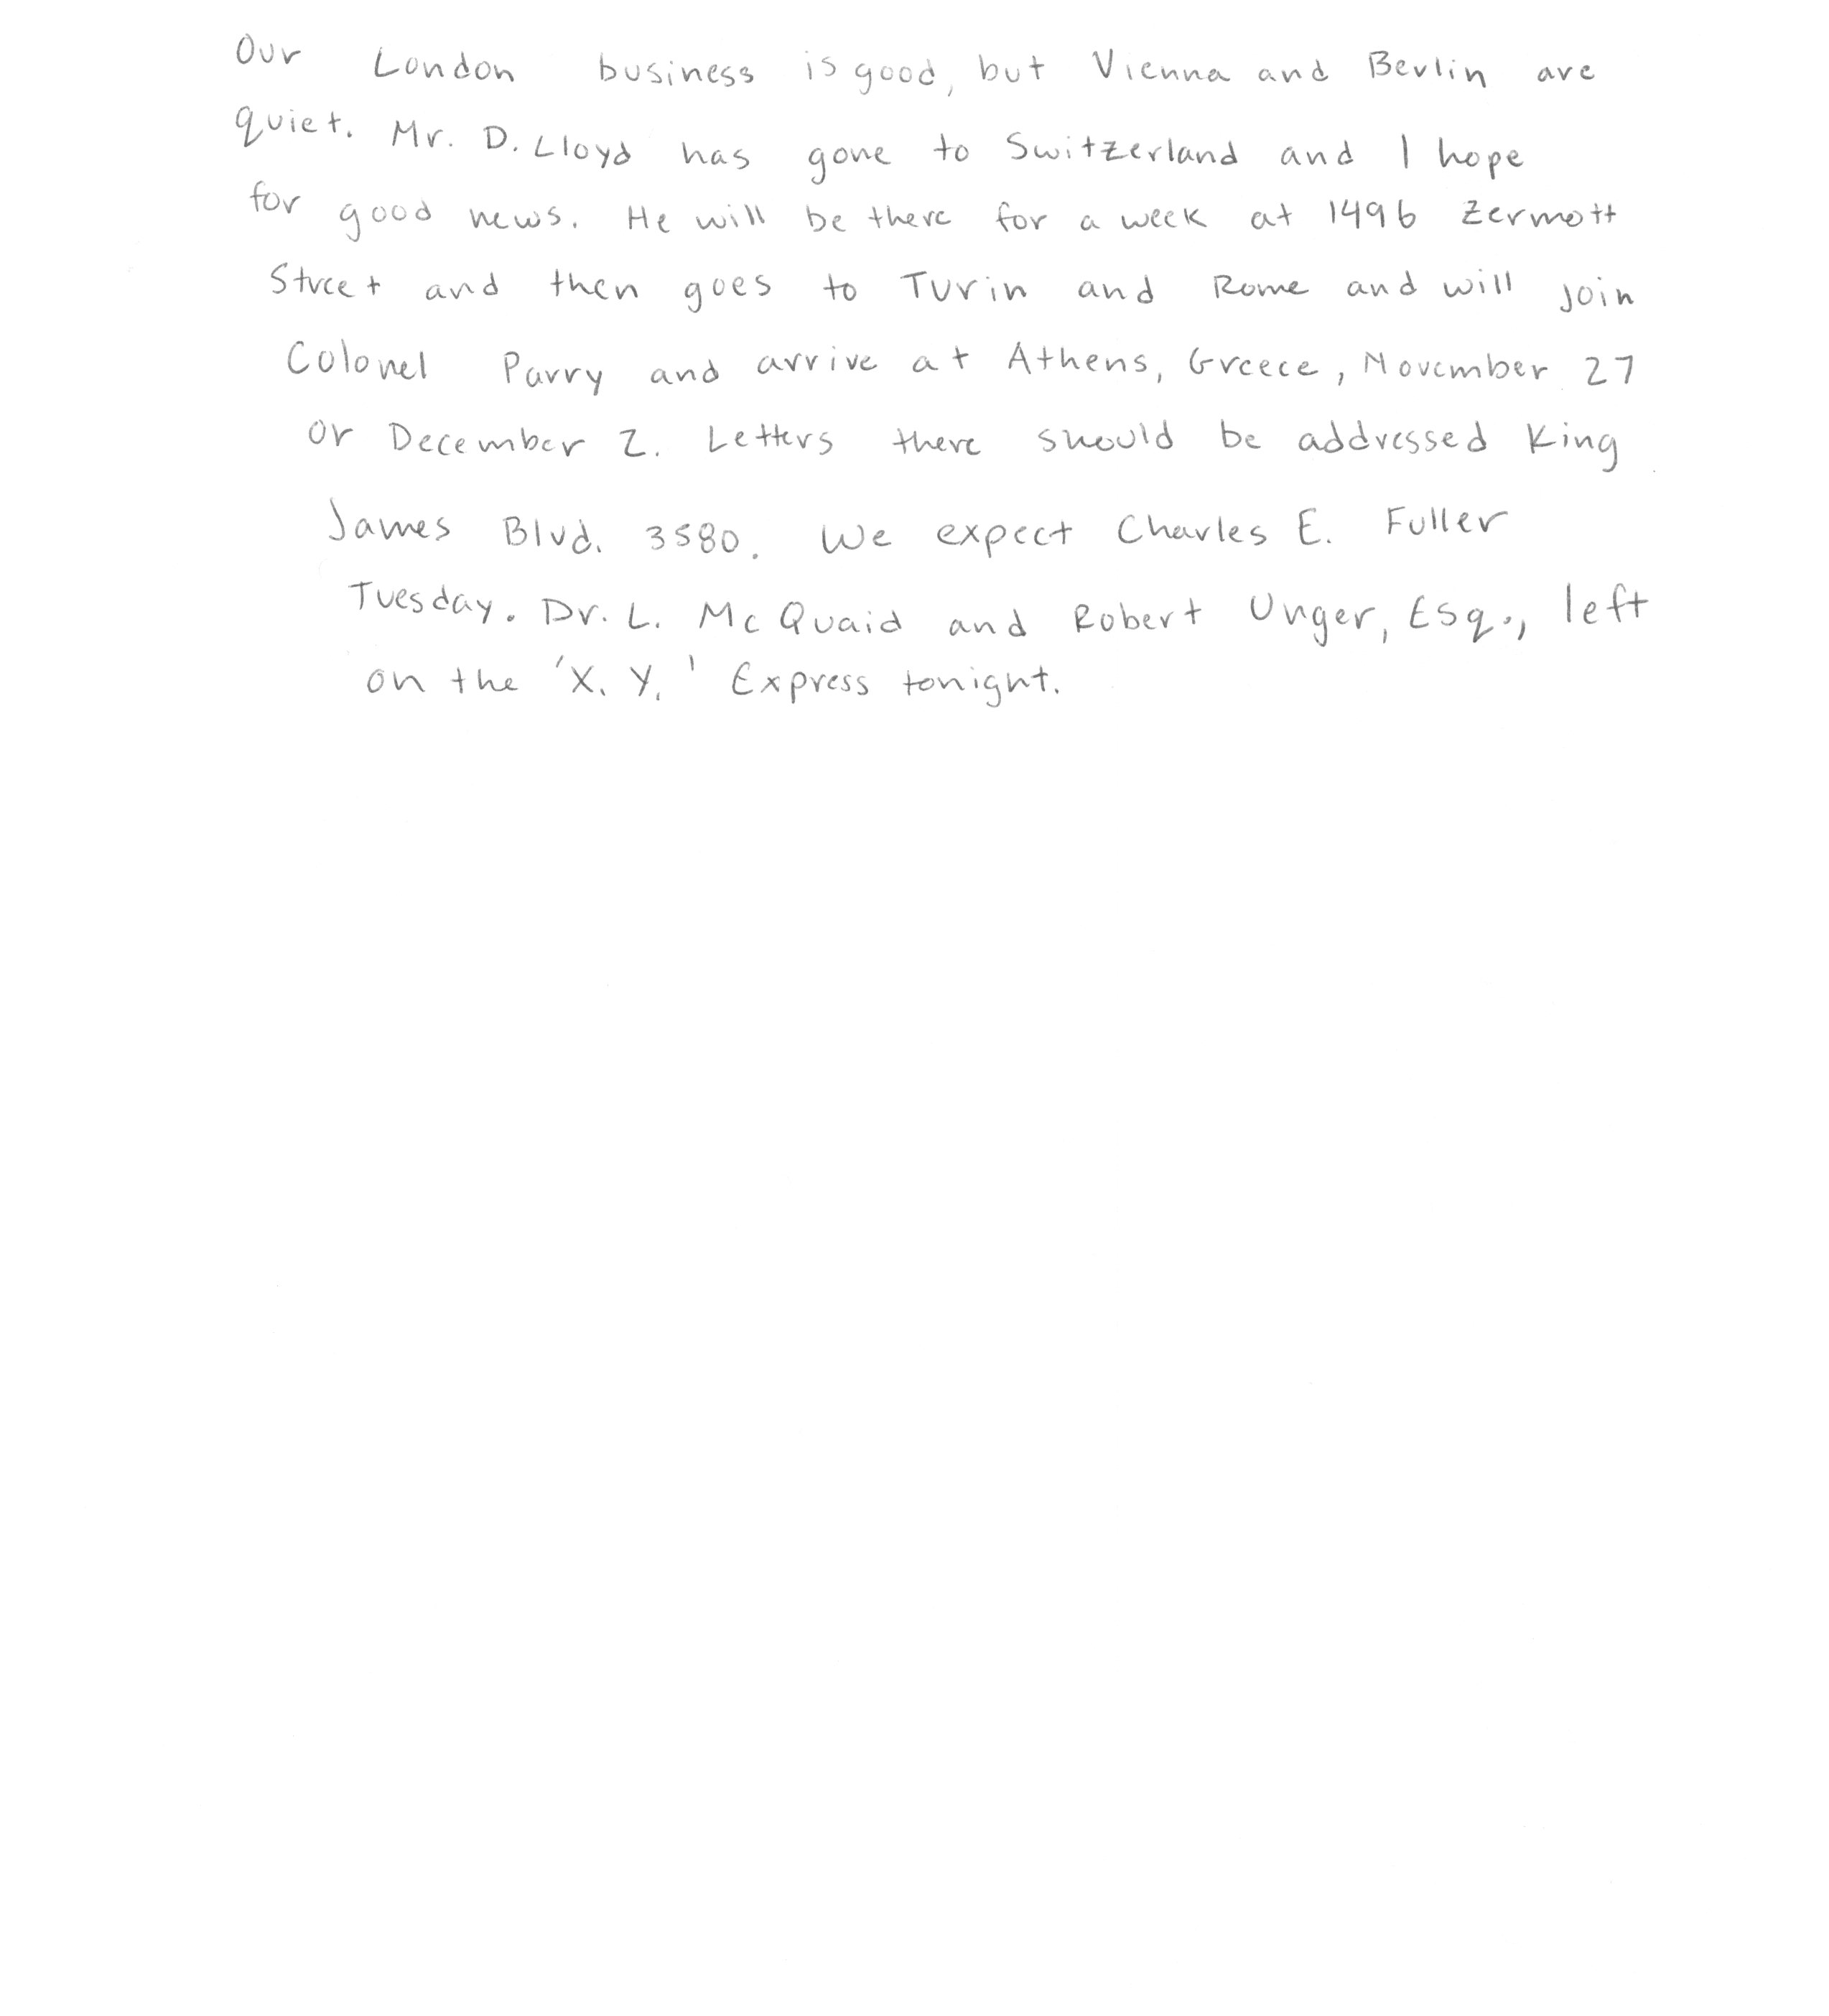 Our London business is good, but Vienna and Berlin are
quiet. Mr. D. Lloyd has gone to Switzerland and I hope
for good news. He will be there for a week at 1496 Zermott
Street and then goes to Turin and Rome and will join
Colonel Parry and arrive at Athens, Greece, November 27
or December 2. Letters there should be addressed King
James Blvd. 3580. We expect Charles E. Fuller
Tuesday. Dr. L. McQuaid and Robert Unger, Esq., left
on the 'X. Y.' Express tonight.